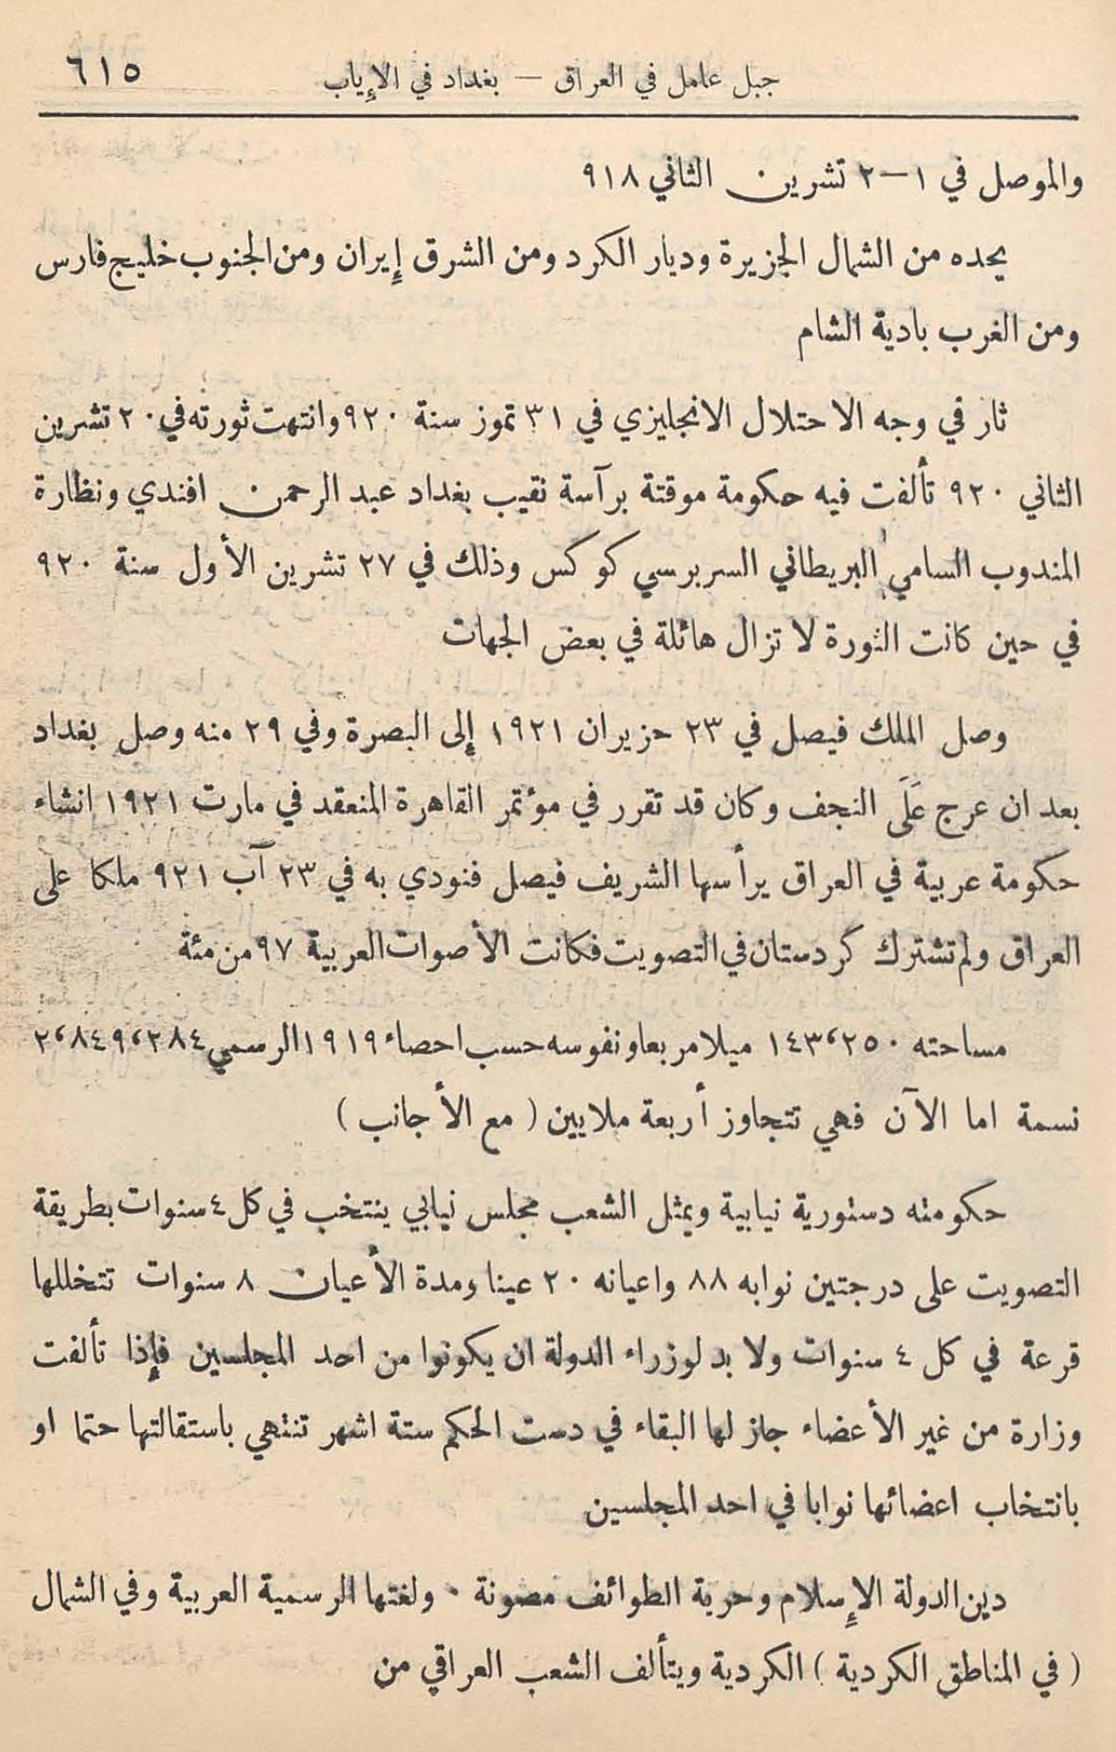 جبل عامل في العراق — بغداد في الإياب ٦١٥
والموصل في ١–٢ تشرين الثاني ٩١٨
يحده من الشمال الجزيرة وديار الكرد ومن الشرق إيران ومن الجنوب خليج فارس
ومن الغرب بادية الشام
ثار في وجه الاحتلال الانجليزي في ٣١ تموز سنة ٩٢٠ وانتهت ثورته في ٢٠ تشرين
الثاني ٩٢٠ تألفت فيه حكومة موقتة برآسة نقيب بغداد عبد الرحمن افندي ونظارة
المندوب السامي البريطاني السربرسي كوكس وذلك في ٢٧ تشرين الأول سنة ٩٢٠
في حين كانت الثورة لا تزال هائلة في بعض الجهات
وصل الملك فيصل في ٢٣ حزيران ١٩٢١ إلى البصرة وفي ٢٩ منه وصل بغداد
بعد ان عرج عَلَى النجف وكان قد تقرر في مؤتمر القاهرة المنعقد في مارت ١٩٢١ انشاء
حكومة عربية في العراق يرأسها الشريف فيصل فنودي به في ٢٣ آب ٩٢١ ملكا على
العراق ولم تشترك كردستان في التصويت فكانت الأصوات العربية ٩٧ من مئة
مساحته ١٤٣٬٢٥٠ ميلا مربعا ونفوسه حسب احصاء ١٩١٩ الرسمي ٢٬٨٤٩٬٢٨٤
نسمة اما الآن فهي تتجاوز أربعة ملايين ( مع الأجانب )
حكومته دستورية نيابية ويمثل الشعب مجلس نيابي ينتخب في كل ٤ سنوات بطريقة
التصويت على درجتين نوابه ٨٨ واعيانه ٢٠ عينا ومدة الأعيان ٨ سنوات تتخللها
قرعة في كل ٤ سنوات ولا بد لوزراء الدولة ان يكونوا من احد المجلسين فإذا تألفت
وزارة من غير الأعضاء جاز لها البقاء في دست الحكم ستة اشهر تنتهي باستقالتها حتما او
بانتخاب اعضائها نوابا في احد المجلسين
دين الدولة الإسلام وحرية الطوائف مصونة ٠ ولغتها الرسمية العربية وفي الشمال
( في المناطق الكردية ) الكردية ويتألف الشعب العراقي من